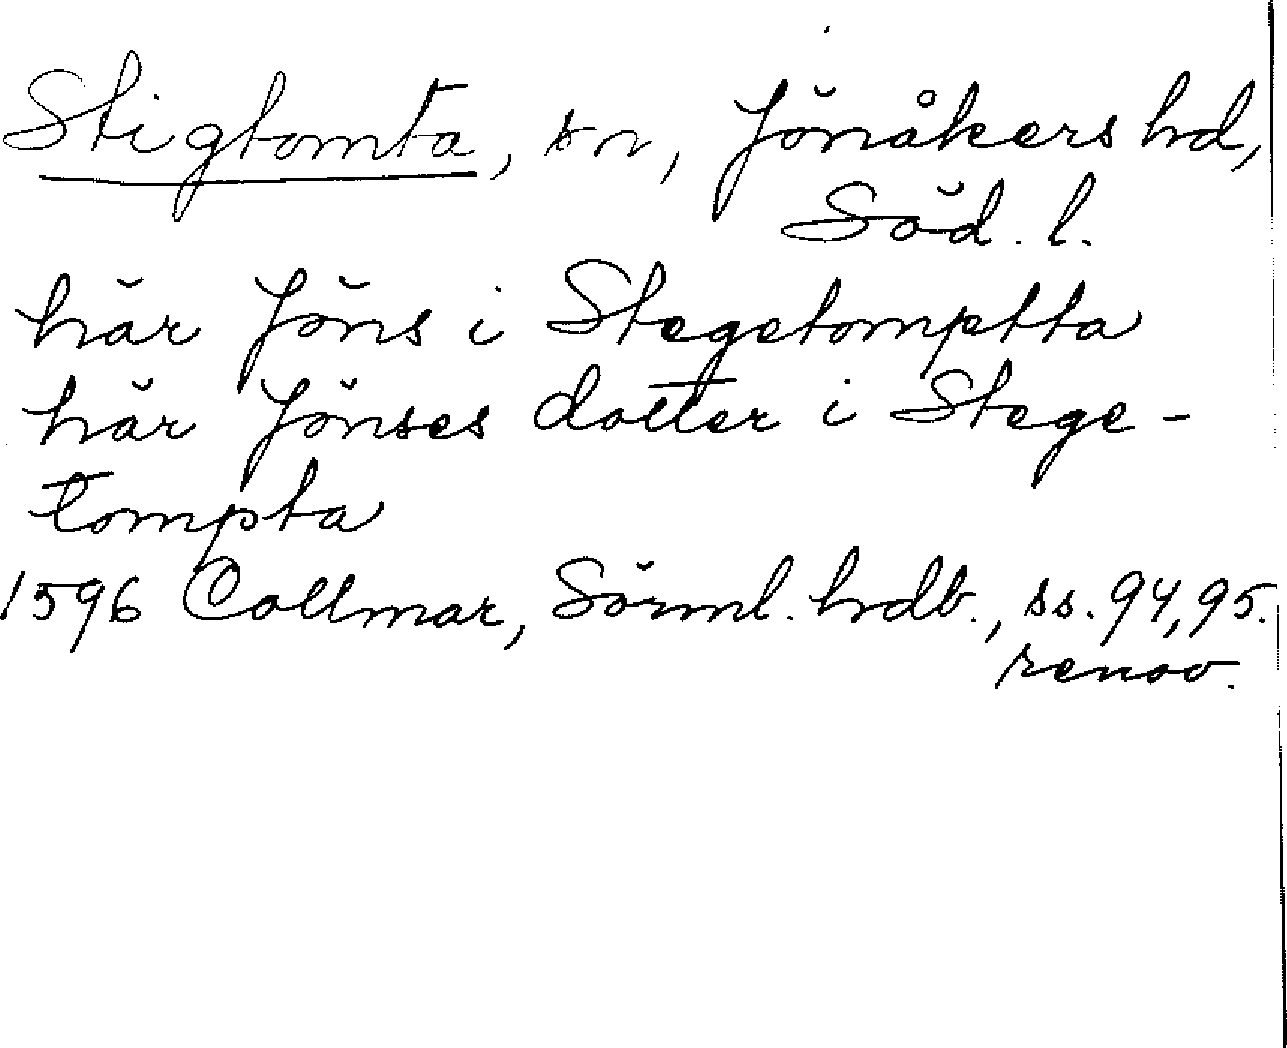 Stigtomta, sn, Jönåkers hd,
Söd. l.
här Jöns i Stegetomptta
här Jönses dotter i Stege-
tompta
1596 Collmar, Sörml. hdb., ss. 94, 95.
renov.